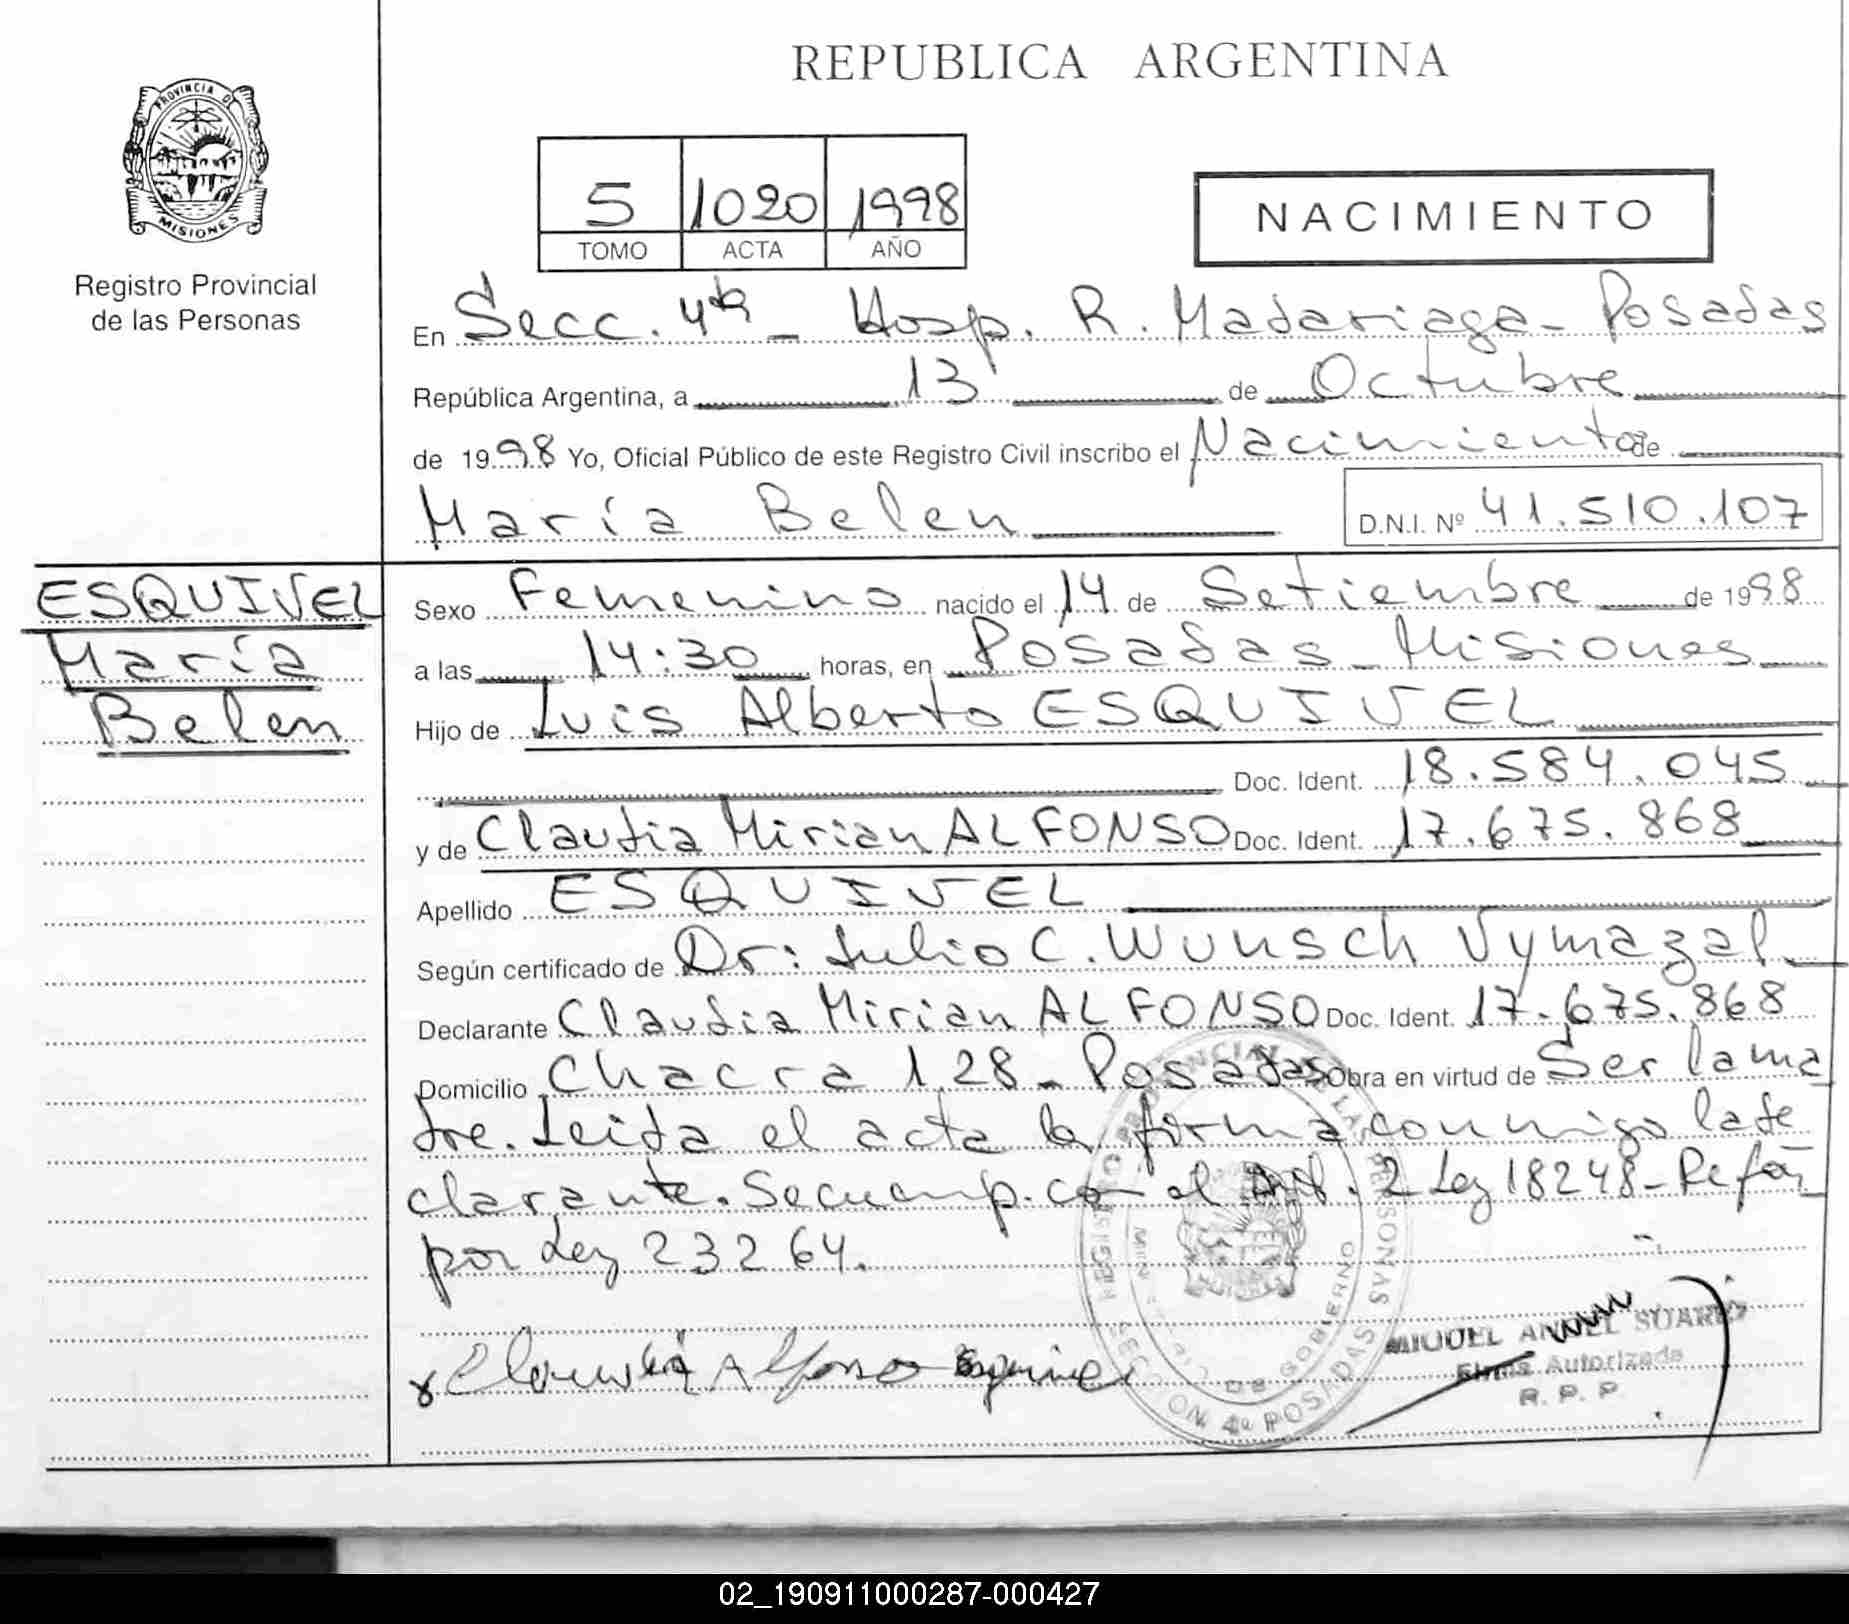 REPUBLICA ARGENTINA
PROVINCIA DE
MISIONES
Registro Provincial
de las Personas
5 1020 1998
TOMO ACTA AÑO
NACIMIENTO
En Secc. 4ta - Hosp. R. Madariaga - Posadas
República Argentina, a 13 de Octubre
de 1998 Yo, Oficial Público de este Registro Civil inscribo el Nacimiento de
María Belen D.N.I. Nº 41.510.107
ESQUIVEL
María
Belen
Sexo Femenino nacido el 14 de Setiembre de 1998
a las 14:30 horas, en Posadas - Misiones
Hijo de Luis Alberto ESQUIVEL
Doc. Ident. 18.584.045
y de Claudia Mirian ALFONSO Doc. Ident. 17.675.868
Apellido ESQUIVEL
Según certificado de Dr: Julio C. Wunsch Vymazal
Declarante Claudia Mirian ALFONSO Doc. Ident. 17.675.868
Domicilio Chacra 128 - Posadas Obra en virtud de Ser la ma
dre. Leida el acta la firma conmigo la de
clarante. Se cump. con el Art. 2 Ley 18248 -
por Ley 23264.
Alfonso
MIGUEL ANGEL SUAREZ
Firma Autorizada
R. P. P.
REGISTRO PROVINCIAL DE LAS PERSONAS
DE GOBIERNO
SECCION 4ª POSADAS
02_190911000287-000427